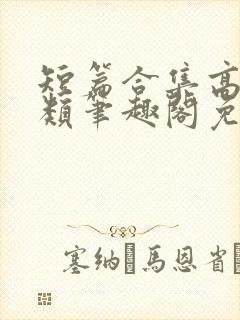 短篇合集高
類筆趣閣免
塞纳·馬恩省